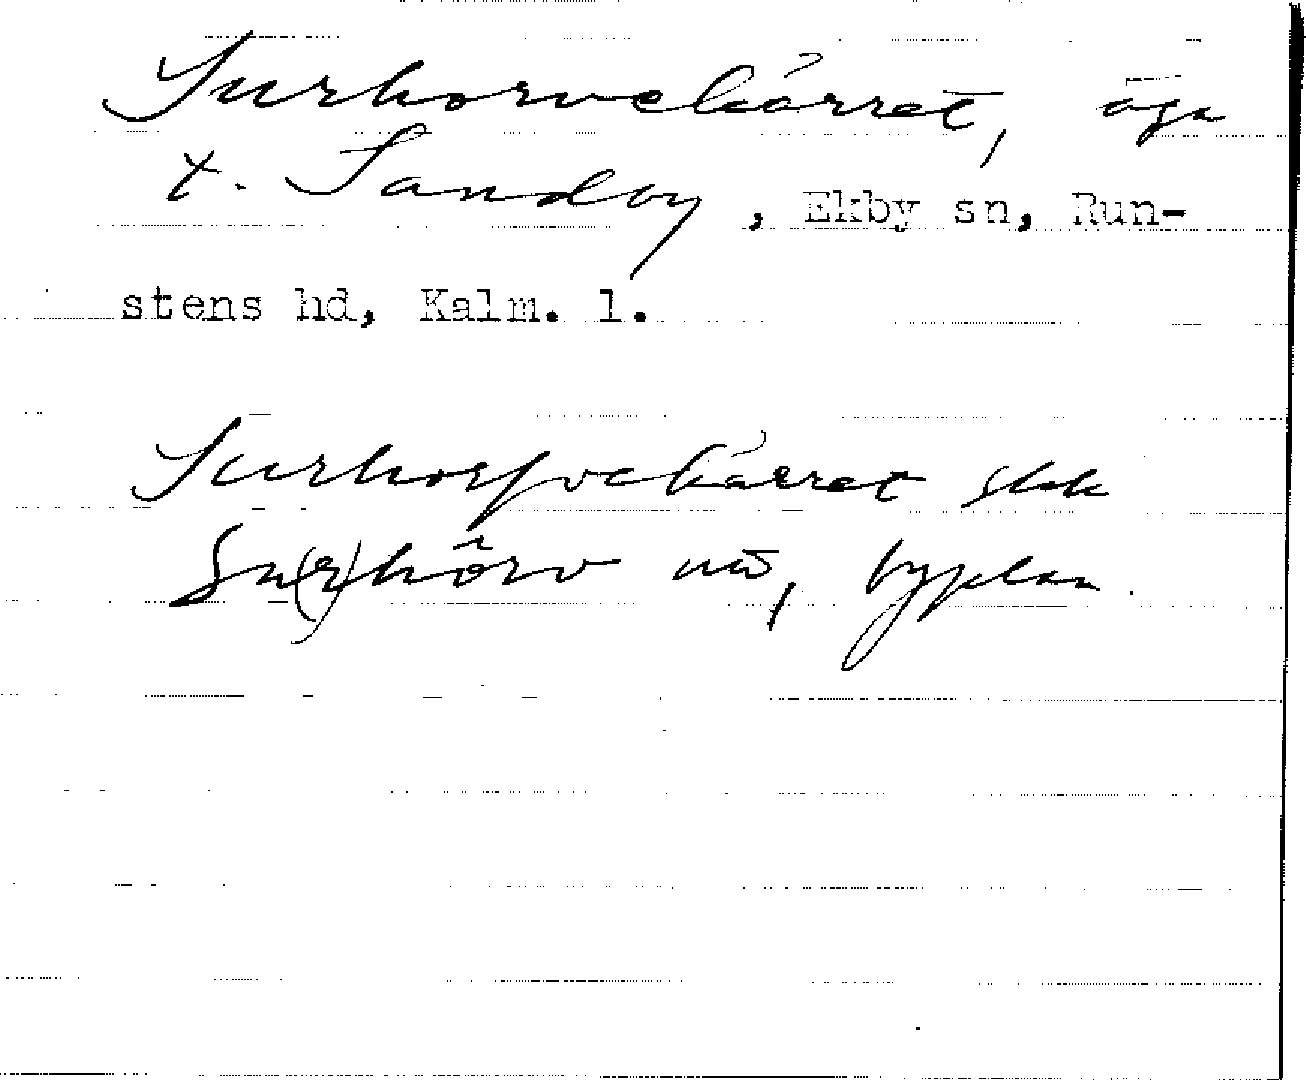 Surhorvekärret, äga
t. Sandby, Ekby sn, Run-
stens hd, Kalm. l.
Surhorfvekärret skk
Su(r)hörv uå, byplan.